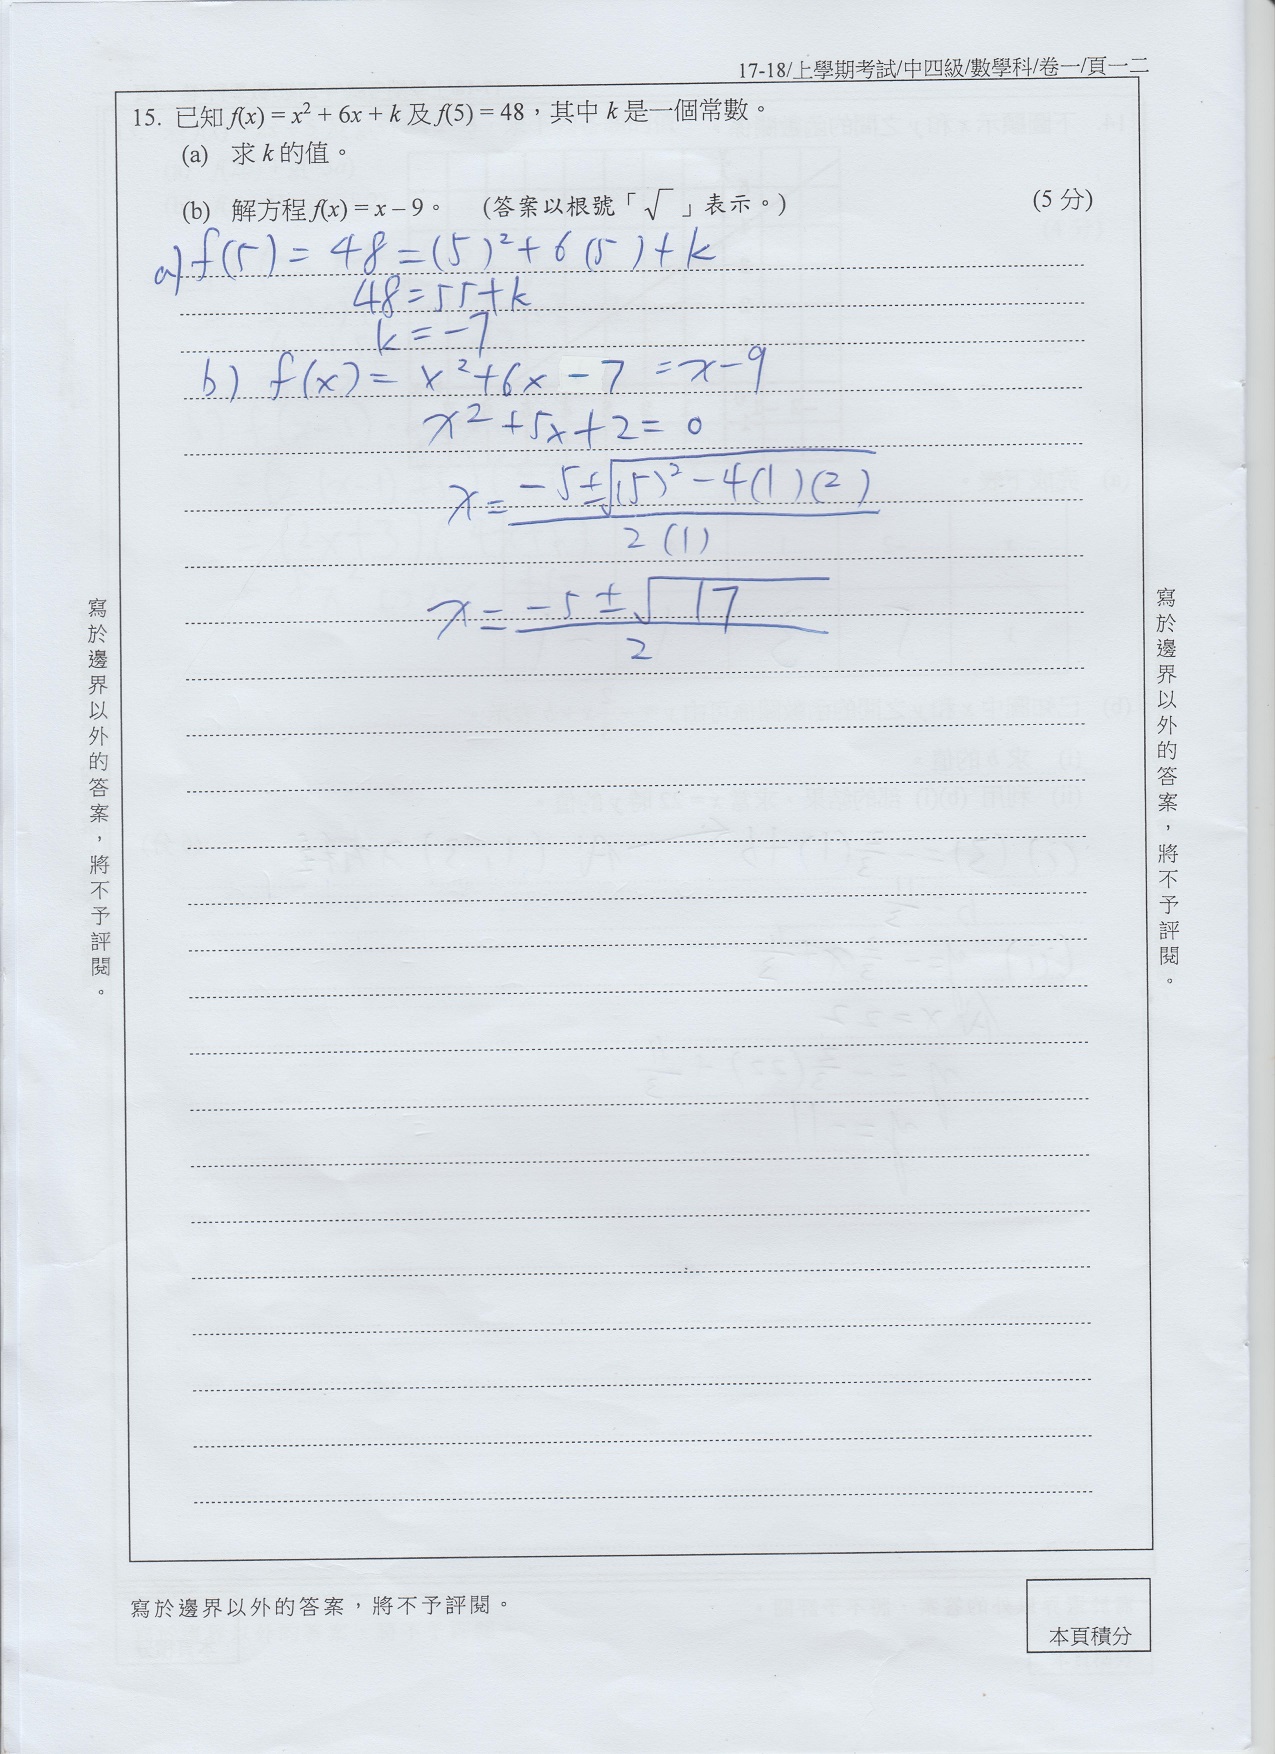 17-18/上學期考試/中四級/數學科/卷一/頁一二
15. 已知 f(x) = x² + 6x + k 及 f(5) = 48，其中 k 是一個常數。
(a) 求 k 的值。
(b) 解方程 f(x) = x – 9。 (答案以根號「√」表示。) (5 分)
a) f(5) = 48 = (5)² + 6(5) + k
48 = 55 + k
k = -7
b) f(x) = x² + 6x - 7 = x - 9
x² + 5x + 2 = 0
x = (-5 ± √((5)² - 4(1)(2))) / 2(1)
x = (-5 ± √17) / 2
寫於邊界以外的答案，將不予評閱。
寫於邊界以外的答案，將不予評閱。
寫於邊界以外的答案，將不予評閱。
本頁積分